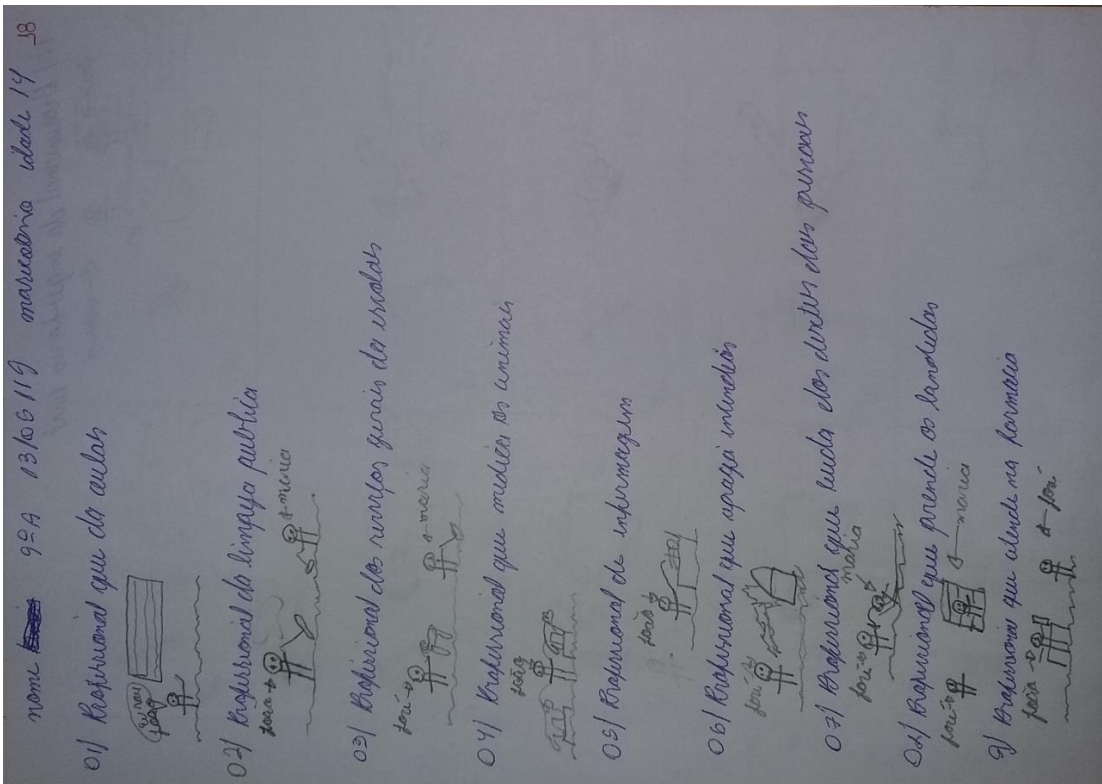 nome 9ºA 13/06/119 idade 14 38
01) Profissional que da aulas
02) Profissional da limpaza publica
joão → ← maria
03) Profissional dos serviços gerais da escolas
José → ← maria
04) Profissional que medica os animais
João
05) Profissional de infermagem
João
06) Profissional que apaga incendios
José
07) Profissional que cuida dos dentes das pessoas
José → maria
08) Profissional que prende os bandidos
José → ← maria
9) Profissional que atende na farmacia
João → ← José